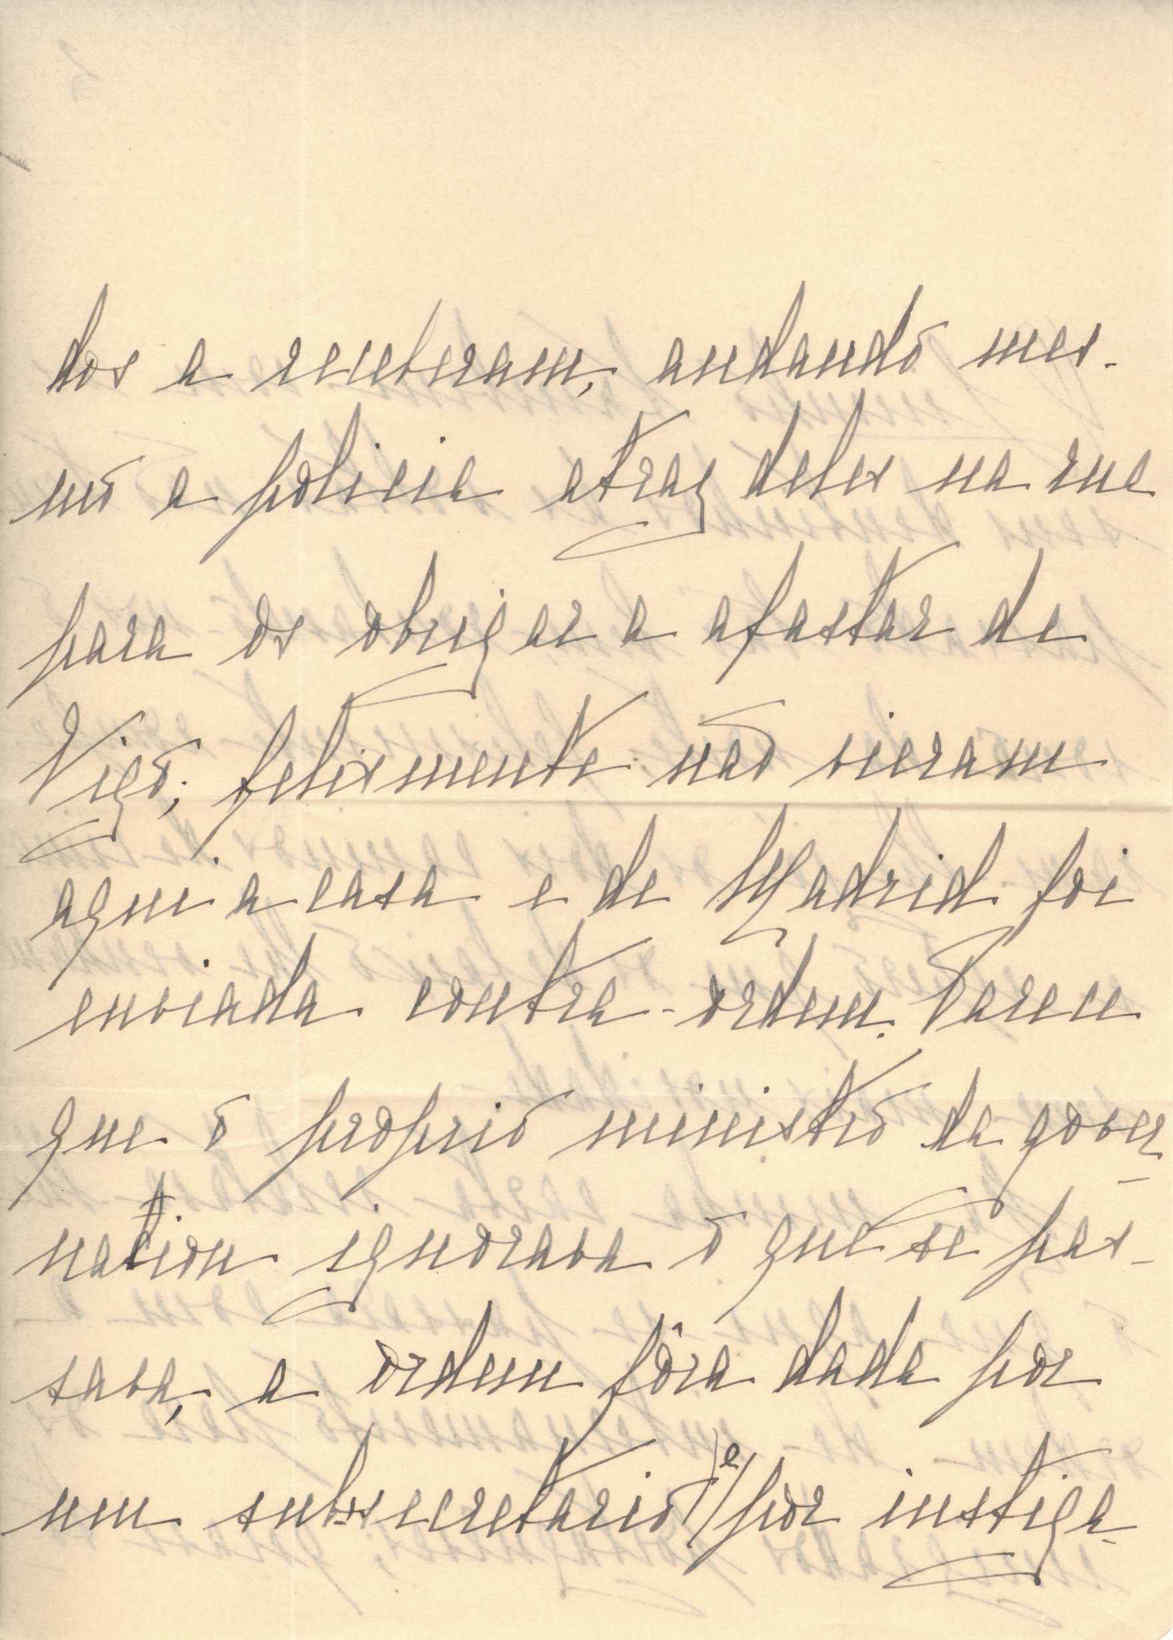 dos a receberam, andando mes-
mo a policia atraz deles na rua
para os obrigar a afastar de
Vigo; felixmente não vieram
aqui a casa e de Madrid foi
enviada contra-ordem. Parece
que o proprio ministro da gober
nation ignorava o que se pas-
sava, a ordem fôra dada por
um subsecretario, e por instiga-